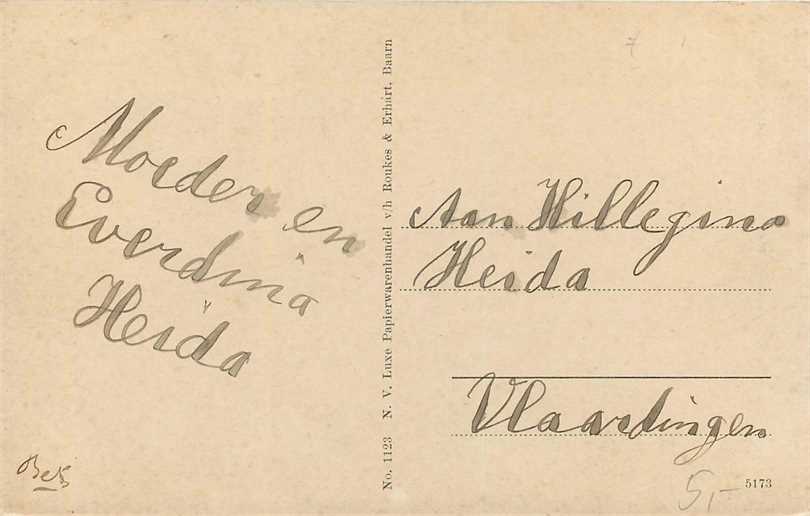 Moeder en
Everdina
Heida
N. V. Luxe Papierwarenhandel v/h Roukes & Erhart, Baarn
No. 1123
Aan Hillegina
Heida
Vlaardingen
5,-
5173